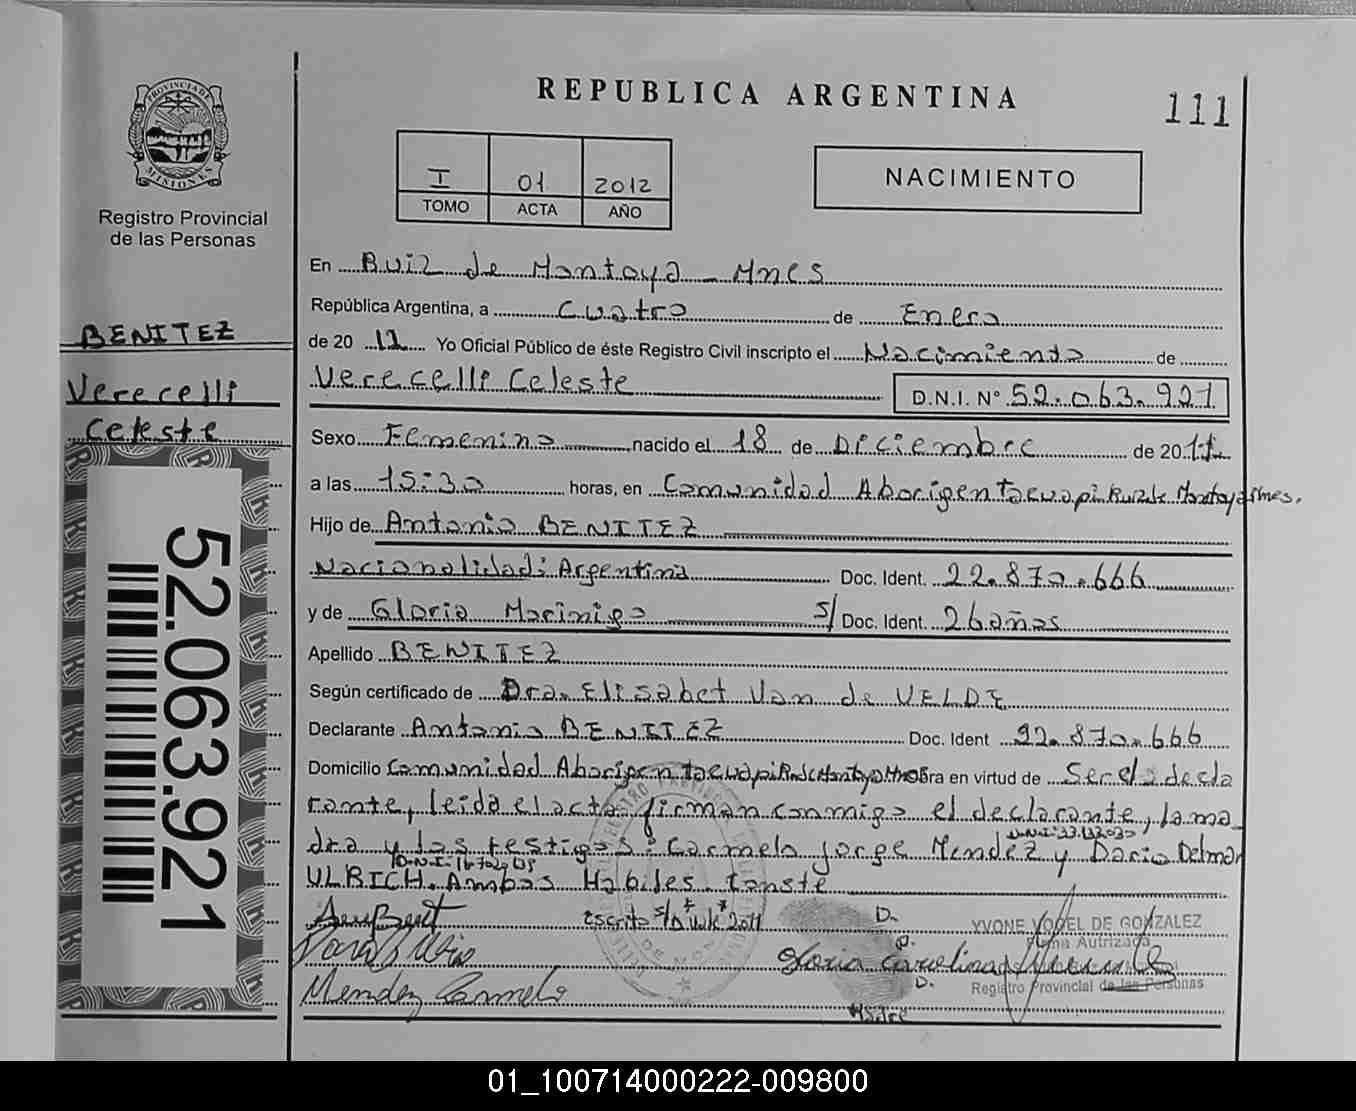 REPUBLICA ARGENTINA
111
PROVINCIA DE MISIONES
Registro Provincial
de las Personas
I 01 2012
TOMO ACTA AÑO
NACIMIENTO
BENITEZ
Verecelli
Celeste
52.063.921
En Ruiz de Montoya - Mnes
República Argentina, a Cuatro de Enero
de 20 12 Yo Oficial Público de éste Registro Civil inscripto el Nacimiento de
Verecelli Celeste D.N.I. N° 52.063.921
Sexo Femenino nacido el 18 de Diciembre de 2011
a las 15:30 horas, en Comunidad Aborigen tacuapi Ruiz de Montoya Mnes.
Hijo de Antonio BENITEZ
Nacionalidad: Argentina Doc. Ident. 22.870.666
y de Gloria Marinigo s/ Doc. Ident. 26 años
Apellido BENITEZ
Según certificado de Dra. Elisabet Van de VELDE
Declarante Antonio BENITEZ Doc. Ident 22.870.666
Domicilio Comunidad Aborigen tacuapi Ruiz de Montoya Mnes Obra en virtud de Ser el decla
rante, leida el acta firman conmigo el declarante, la ma
dre y los testigos: Carmelo Jorge Mendez y Dario Delmar
ULRICH. Ambos Habiles. Conste
Escrito 2011 D.
YVONE VOGEL DE GONZALEZ
Firma Autrizada
Gloria Carolina
D.
Registro Provincial de las Personas
Mendez Carmelo
01_100714000222-009800